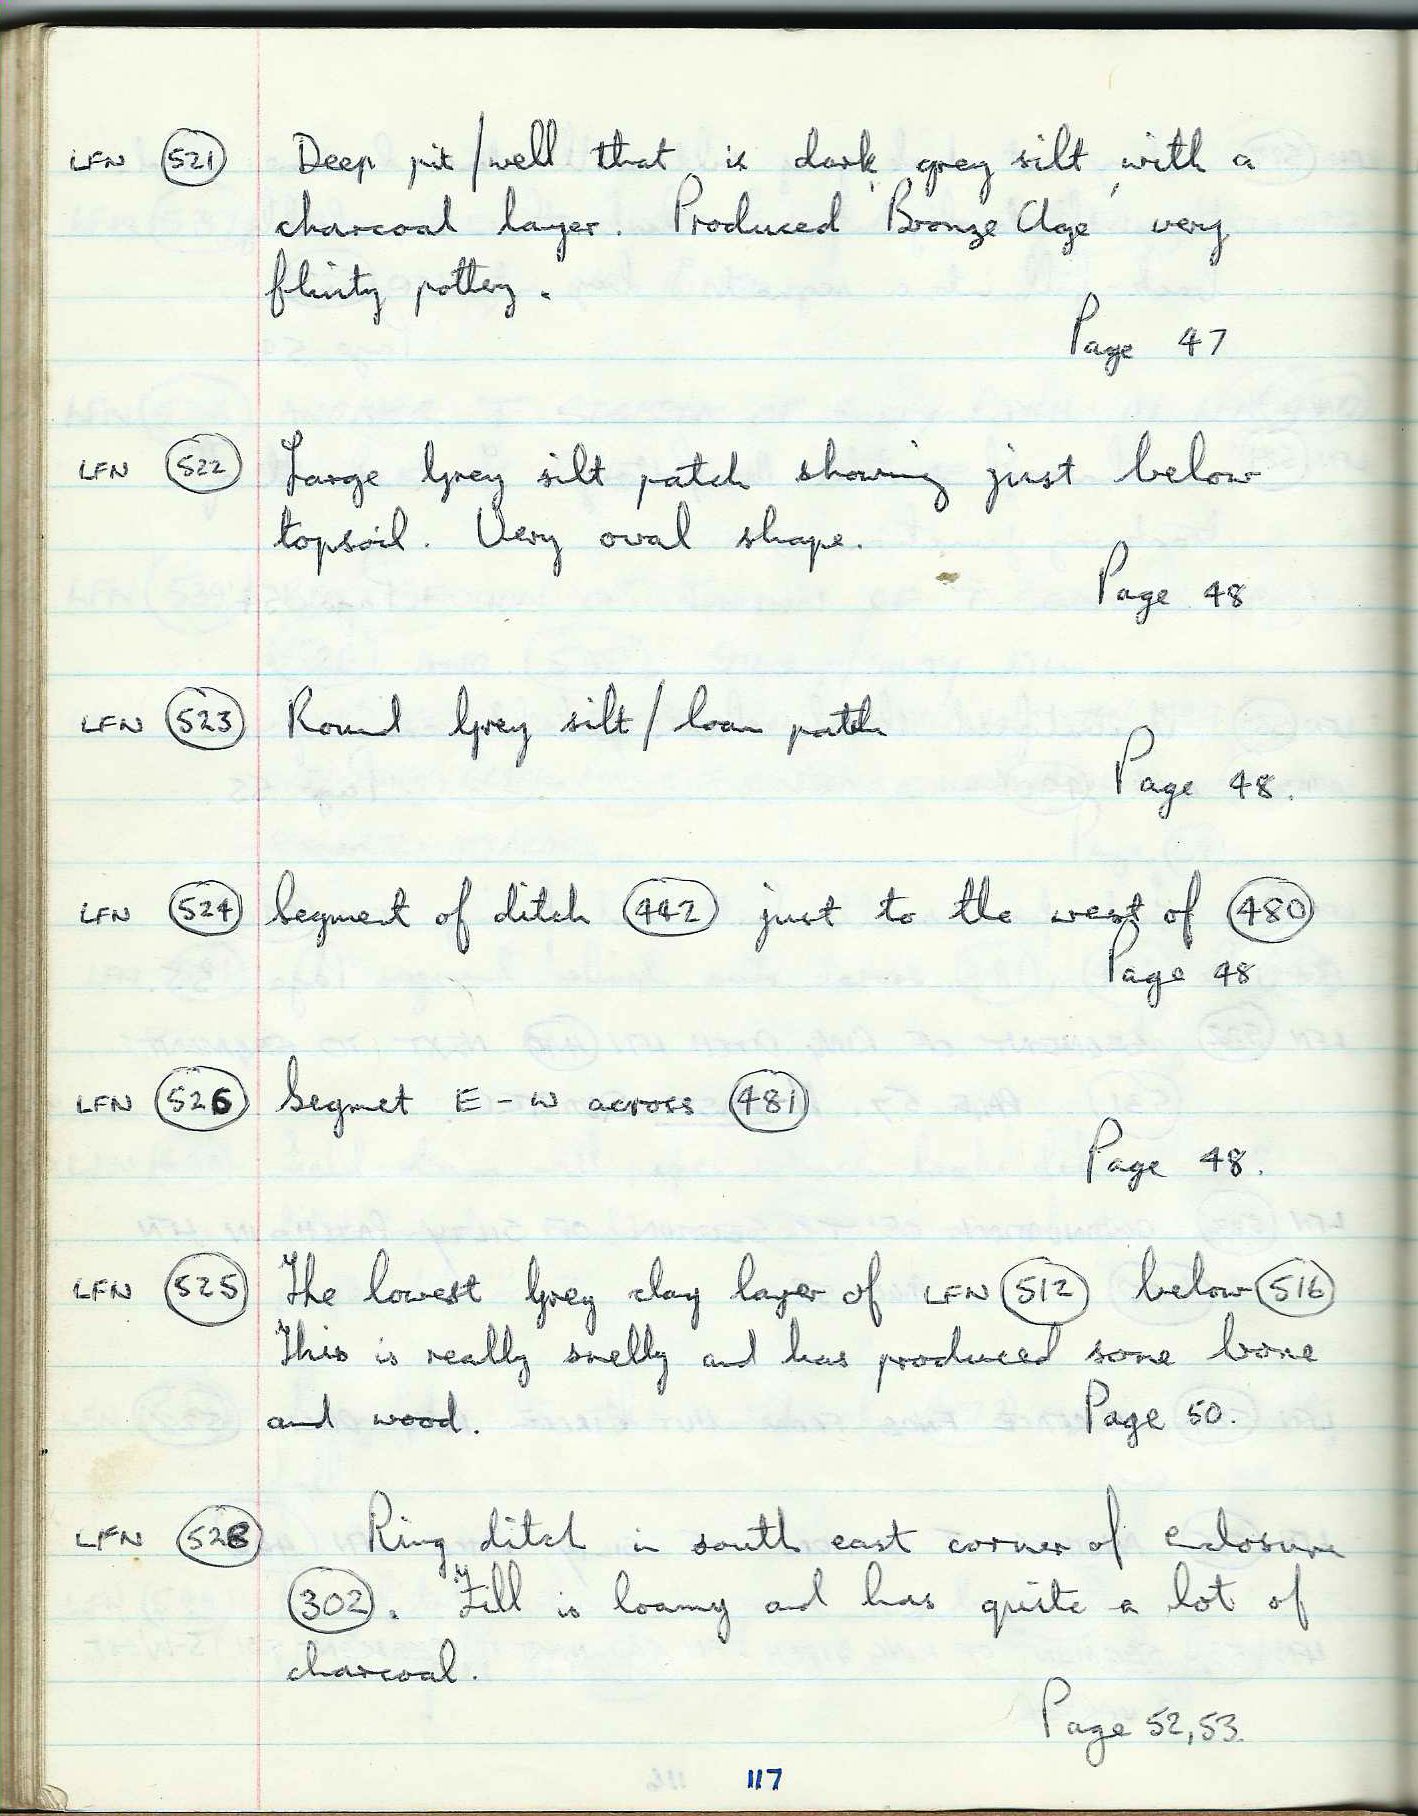 LFN 521 Deep pit/well that is dark grey silt with a
charcoal layer. Produced 'Bronze Age' very
flinty pottery.
Page 47
LFN 522 Large Grey silt patch showing just below
topsoil. Very oval shape.
Page 48
LFN 523 Round Grey silt/loam patch
Page 48.
LFN 524 Segment of ditch 442 just to the west of 480
Page 48
LFN 526 Segmet E-W across 481
Page 48.
LFN 525 The lowest Grey clay layer of LFN 512 below 516
This is really smelly and has produced some bone
and wood. Page 50.
LFN Ring ditch in south east corner of enclosure
302. Fill is loamy and has quite a lot of
charcoal.
Page 52,53.
117